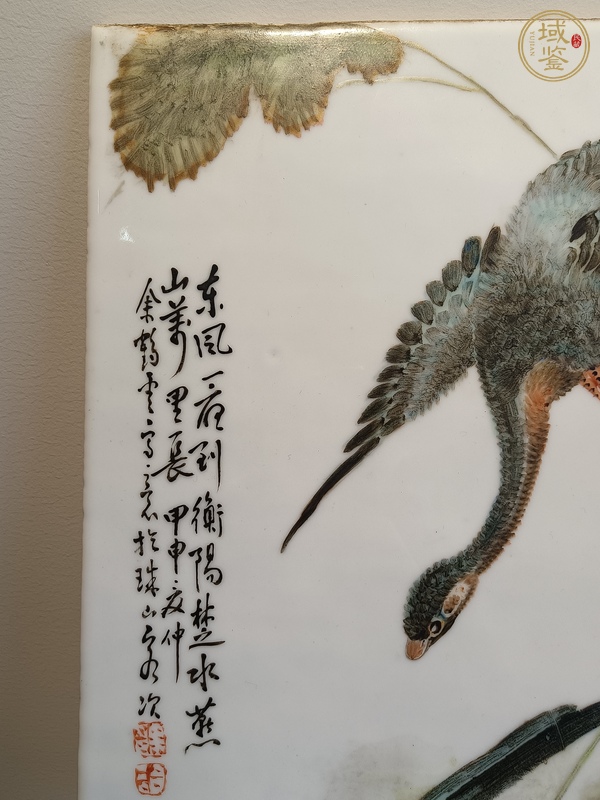 东风一夜到衡阳楚水燕
山万里长 甲申夏仲
余鹤云写意於珠山客次
域鉴
YUJIAN